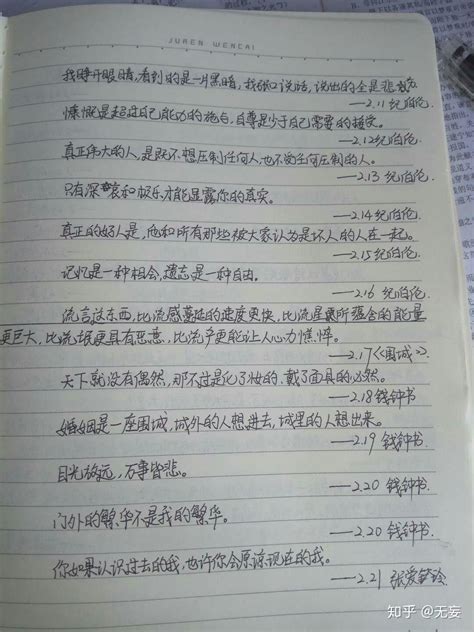 JUREN WENCAI
我睁开眼睛,看到的是一片黑暗,我张口说话,说出的全是悲
——2.11 纪伯伦.
慷慨是超过自己能力的施与,自尊是少于自己需要的接受。
——2.12 纪伯伦.
真正伟大的人,是既不想压制任何人,也不受任何压制的人。
——2.13 纪伯伦.
只有深哀和极乐,才能显露你的真实。
——2.14 纪伯伦.
真正的好人是,他和所有那些被大家认为是坏人的人在一起。
——2.15 纪伯伦.
记忆是一种相会,遗忘是一种自由.
——2.16 纪伯伦.
流言这东西,比流感蔓延的速度更快,比流星所蕴含的能量
更巨大,比流氓更具有恶意,比流产更能让人心力憔悴。
——2.17《围城》.
天下就没有偶然,那不过是化了妆的、戴了面具的必然。
——2.18 钱钟书
婚姻是一座围城,城外的人想进去,城里的人想出来。
——2.19 钱钟书
目光放远,万事皆悲。
——2.20 钱钟书.
门外的繁华不是我的繁华。
——2.20 钱钟书.
你如果认识过去的我,也许你会原谅现在的我。
——2.21 张爱玲
知乎 @无妄